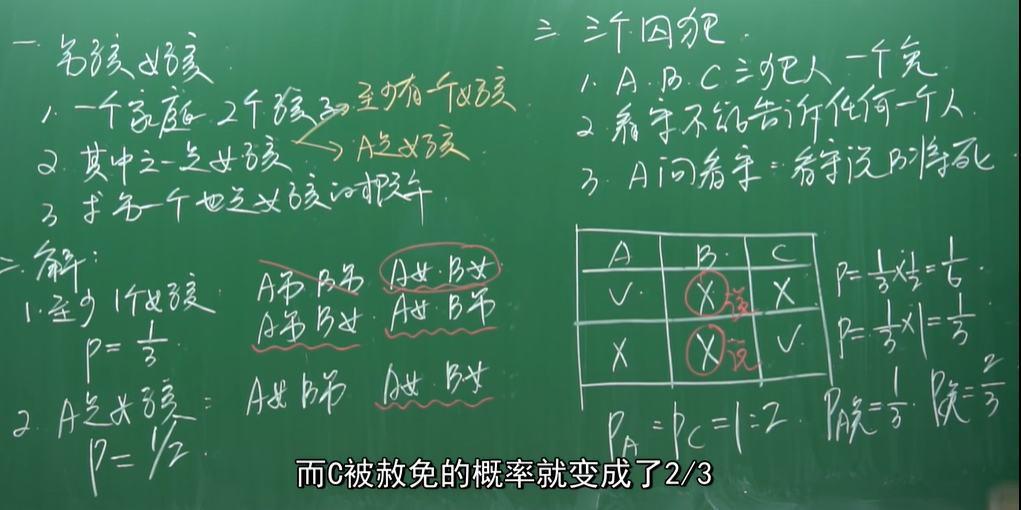 一. 男孩女孩.
1. 一个家庭. 2个孩子
2. 其中之一是女孩
至少有一个女孩
A是女孩.
3 求另一个也是女孩的概率.
二. 解:
1. 至少1个女孩
P = 1/3
A男 B男 A女. B女
A男 B女 A女. B男
2. A是女孩:
P = 1/2.
A女 B男 A女. B女
三 三个囚犯.
1. A. B. C 三犯人 一个免.
2 看守不能告诉任何一个人.
3. A问看守: 看守说B将死
A B. C
V. X 说 X
X X 说 V.
P = 1/3 × 1/2 = 1/6.
P = 1/3 × 1 = 1/3
PA : PC = 1 : 2. PA免 = 1/3. PC免 = 2/3
而C被赦免的概率就变成了2/3